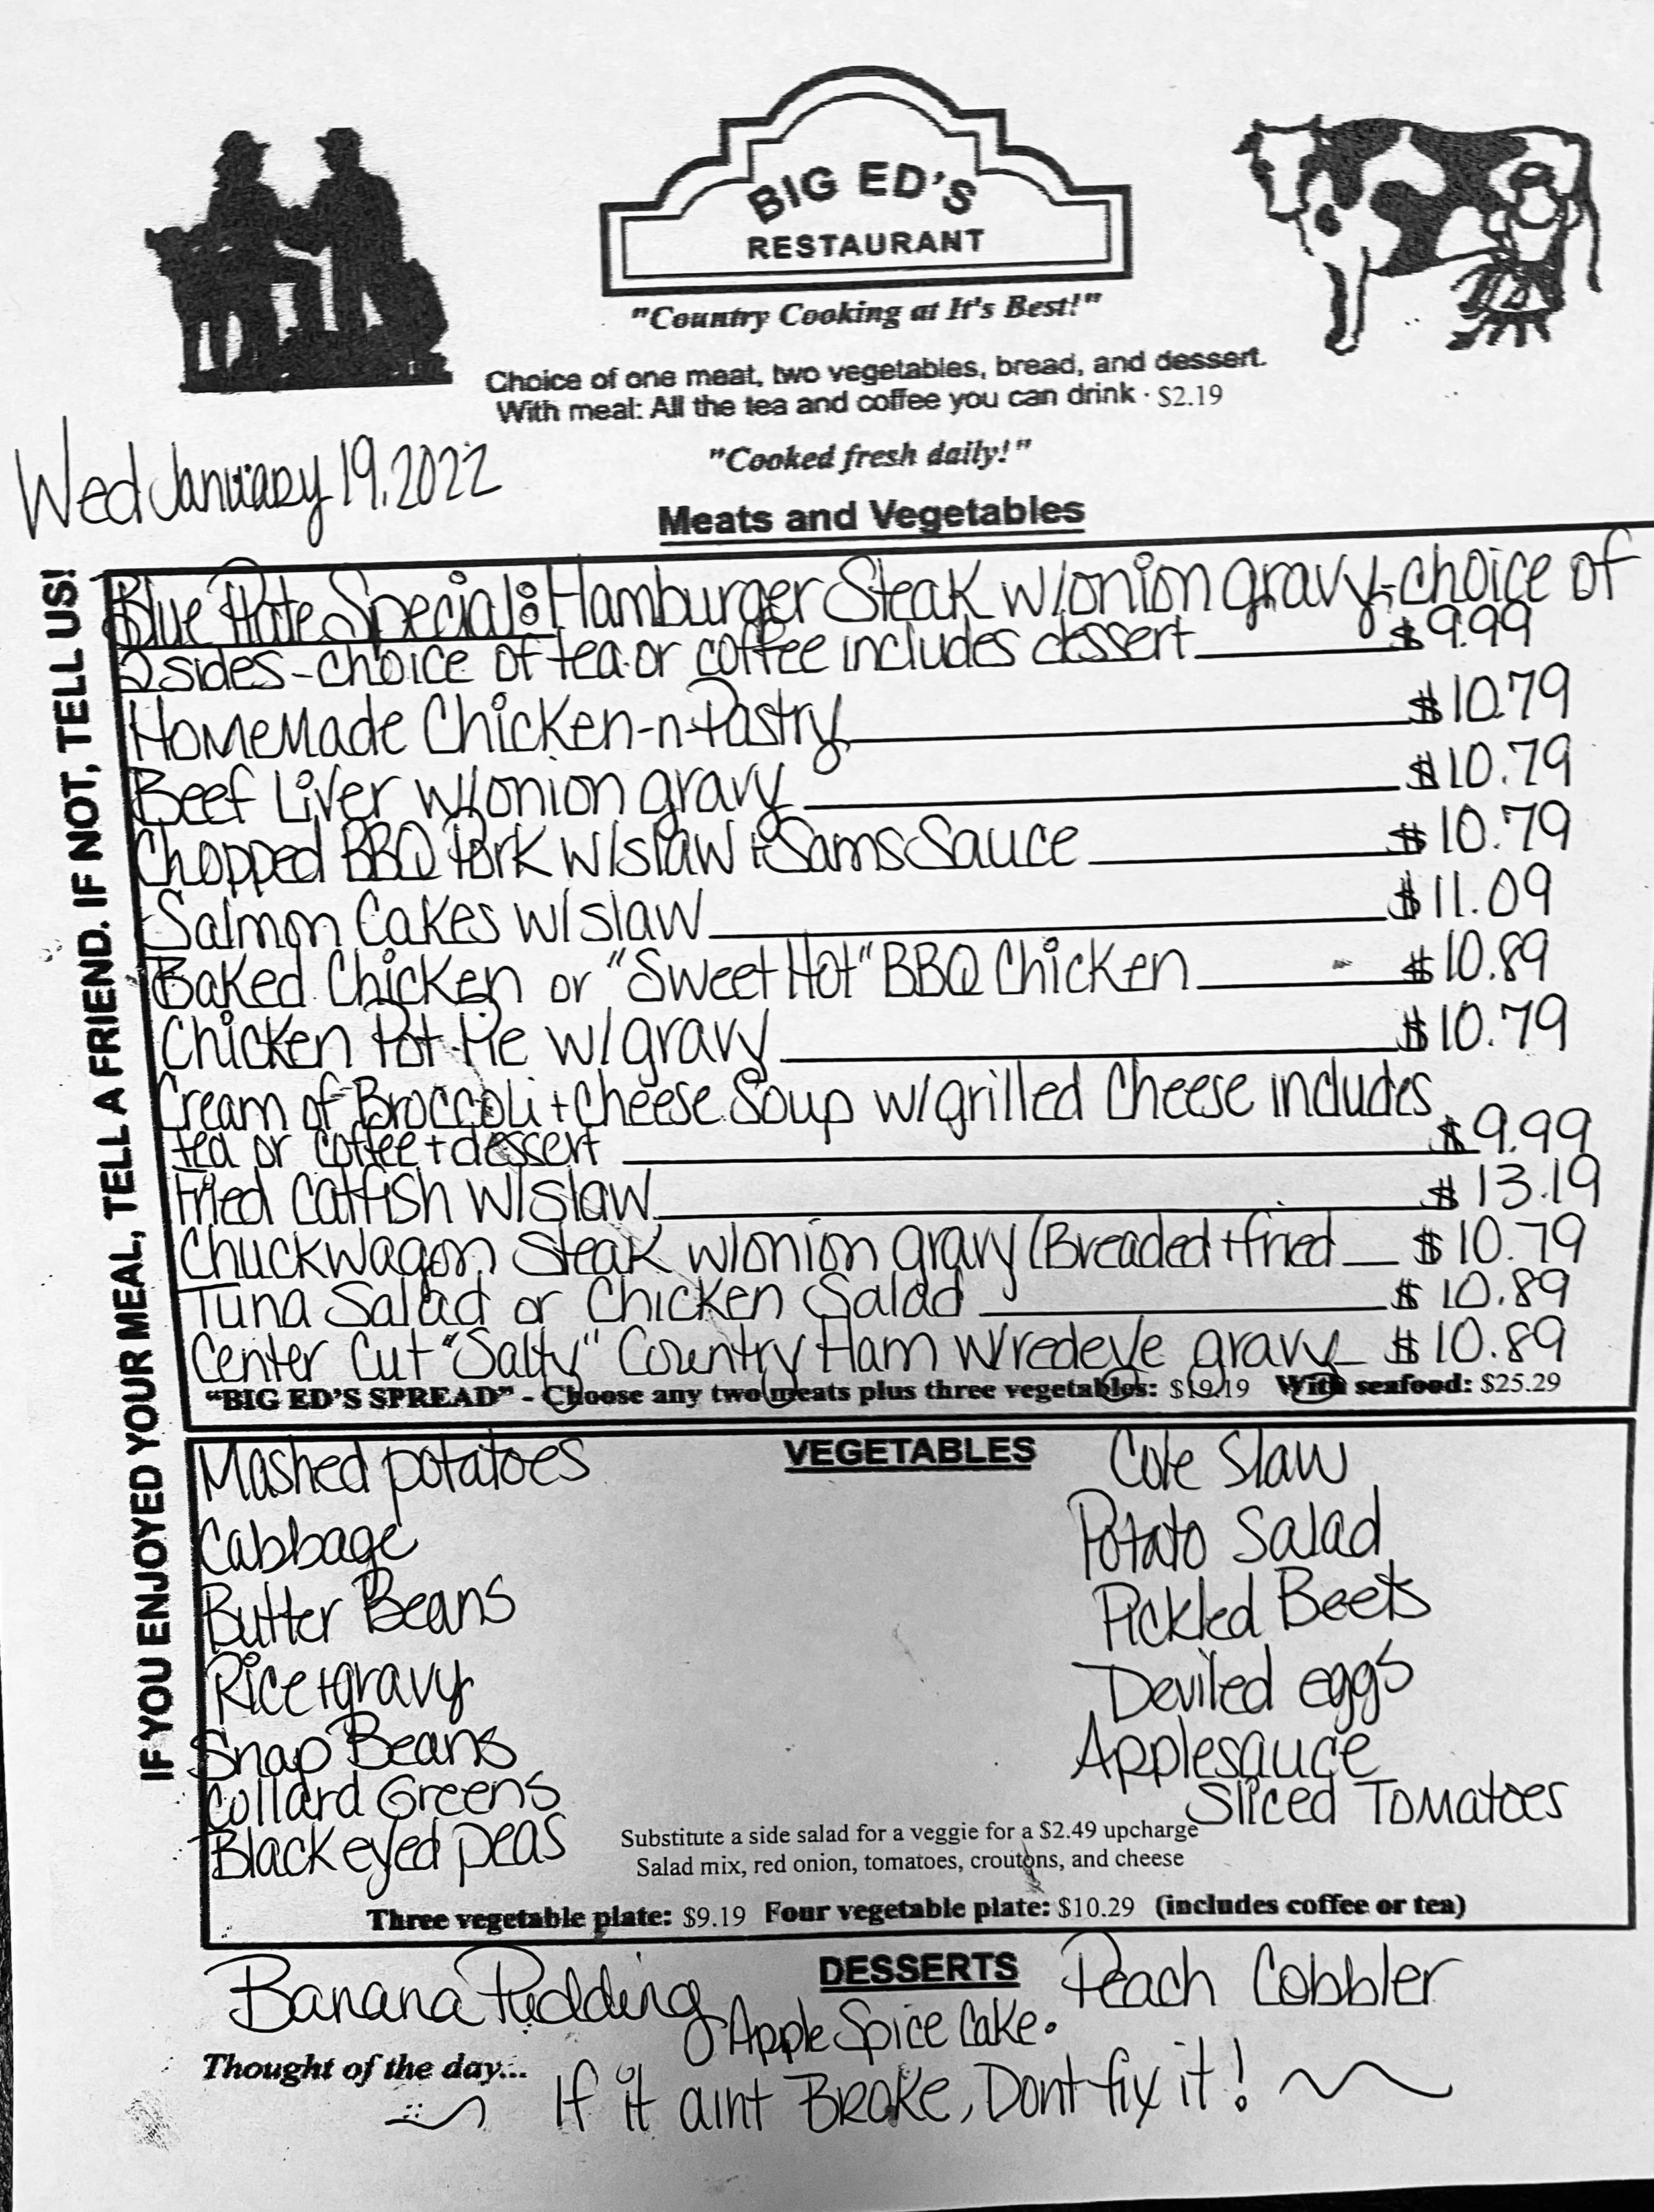 BIG ED'S
RESTAURANT
"Country Cooking at It's Best!"
Choice of one meat, two vegetables, bread, and dessert.
With meal: All the tea and coffee you can drink · $2.19
"Cooked fresh daily!"
Wed January 19, 2022
Meats and Vegetables
IF YOU ENJOYED YOUR MEAL, TELL A FRIEND. IF NOT, TELL US!
Blue Plate Special: Hamburger Steak w/onion gravy-choice of
2 sides-choice of tea or coffee includes dessert $9.99
HomeMade Chicken-n-Pastry $10.79
Beef Liver w/onion gravy $10.79
Chopped BBQ Pork w/slaw + Sams Sauce $10.79
Salmon Cakes w/slaw $11.09
Baked Chicken or "Sweet Hot" BBQ Chicken $10.89
Chicken Pot Pie w/gravy $10.79
Cream of Broccoli + cheese Soup w/grilled Cheese includes
tea or coffee + dessert $9.99
Fried Catfish w/slaw $13.19
Chuckwagon Steak w/onion gravy (Breaded + fried $10.79
Tuna Salad or Chicken Salad $10.89
Center Cut "Salty" Country Ham w/redeye gravy $10.89
"BIG ED'S SPREAD" - Choose any two meats plus three vegetables: $19.19 With seafood: $25.29
VEGETABLES
Mashed potatoes
Cabbage
Butter Beans
Rice + gravy
Snap Beans
Collard Greens
Blackeyed peas
Cole Slaw
Potato Salad
Pickled Beets
Deviled eggs
Applesauce
Sliced Tomatoes
Substitute a side salad for a veggie for a $2.49 upcharge
Salad mix, red onion, tomatoes, croutons, and cheese
Three vegetable plate: $9.19 Four vegetable plate: $10.29 (includes coffee or tea)
DESSERTS
Banana Pudding
Apple Spice Cake.
Peach Cobbler
Thought of the day...
If it aint Broke, Dont fix it!